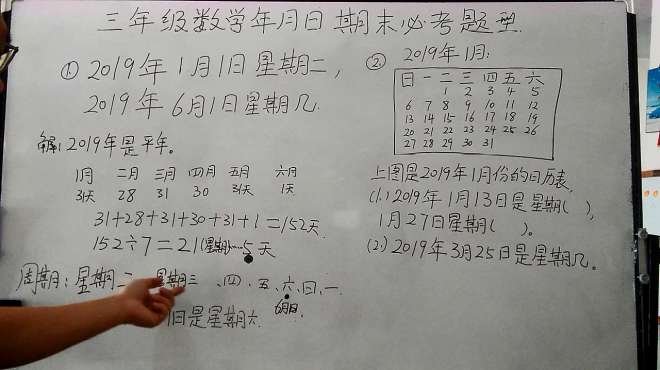 三年级数学年月日期末必考题型
① 2019年1月1日星期二,
2019年6月1日星期几.
解:2019年是平年。
1月 二月 三月 四月 五月 六月
31天 28 31 30 31天 1天
31+28+31+30+31+1=152天
152÷7=21(星期)……5天
周期:星期二、星期三、四、五、六、日、一.
6月1日
1日是星期六.
② 2019年1月:
日 一 二 三 四 五 六
1 2 3 4 5
6 7 8 9 10 11 12
13 14 15 16 17 18 19
20 21 22 23 24 25 26
27 28 29 30 31
上图是2019年1月份的日历表,
(1.)2019年1月13日是星期( ),
1月27日星期( )。
(2)2019年3月25日是星期几。